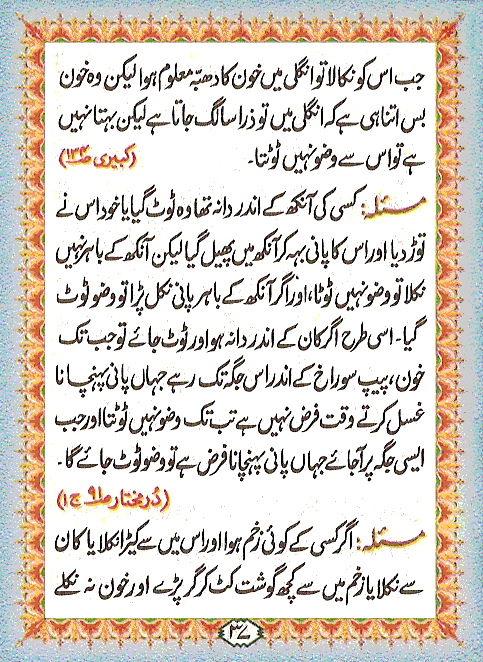 جب اس کو نکالا تو انگلی میں خون کا دھبہ معلوم ہوا لیکن وہ خون
بس اتنا ہی ہے کہ انگلی میں تو ذرا سا لگ جاتا ہے لیکن بہتا نہیں
ہے تو اس سے وضو نہیں ٹوٹتا۔ (کبیری ص۱۳۴)
مسئلہ: کسی کی آنکھ کے اندر دانہ تھا وہ ٹوٹ گیا یا خود اس نے
توڑ دیا اور اس کا پانی بہہ کر آنکھ میں پھیل گیا لیکن آنکھ کے باہر نہیں
نکلا تو وضو نہیں ٹوٹا، اور اگر آنکھ کے باہر پانی نکل پڑا تو وضو ٹوٹ
گیا۔ اسی طرح اگر کان کے اندر دانہ ہو اور ٹوٹ جائے تو جب تک
خون، پیپ سوراخ کے اندر اس جگہ تک رہے جہاں پانی پہنچانا
غسل کرتے وقت فرض نہیں ہے تب تک وضو نہیں ٹوٹتا اور جب
ایسی جگہ پر آجائے جہاں پانی پہنچانا فرض ہے تو وضو ٹوٹ جائے گا۔
(درمختار ص۹۱ ج۱)
مسئلہ: اگر کسی کے کوئی زخم ہوا اور اس میں سے کیڑا نکلا یا کان
سے نکلا یا زخم میں سے کچھ گوشت کٹ کر گر پڑے اور خون نہ نکلے
۳۷